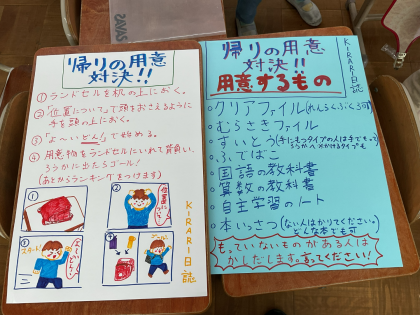 帰りの用意
対決!!
①ランドセルを机の上におく。
②「位置について」で頭をおさえるように
手を頭の上におく。
③「よーいどん!」で始める。
④用意物をランドセルにいれて背負い、
ろうかに出たらゴール!
(あとからランキングをつけます)
①
②
位置について
③
スタート!
④
ゴール!
KIRARI日誌
帰りの用意
対決!!
用意するもの
KIRARI日誌
・クリアファイル(れんらくぶくろ可)
・むらさきファイル
・すいとう(手にもつタイプの人は手でもって
・ふでばこ
・国語の教科書
・算数の教科書
・自主学習のノート
・本いっさつ(ない人はかりてください。
どんな本でも可
もっていないものがある人は
かしだします。言ってください!